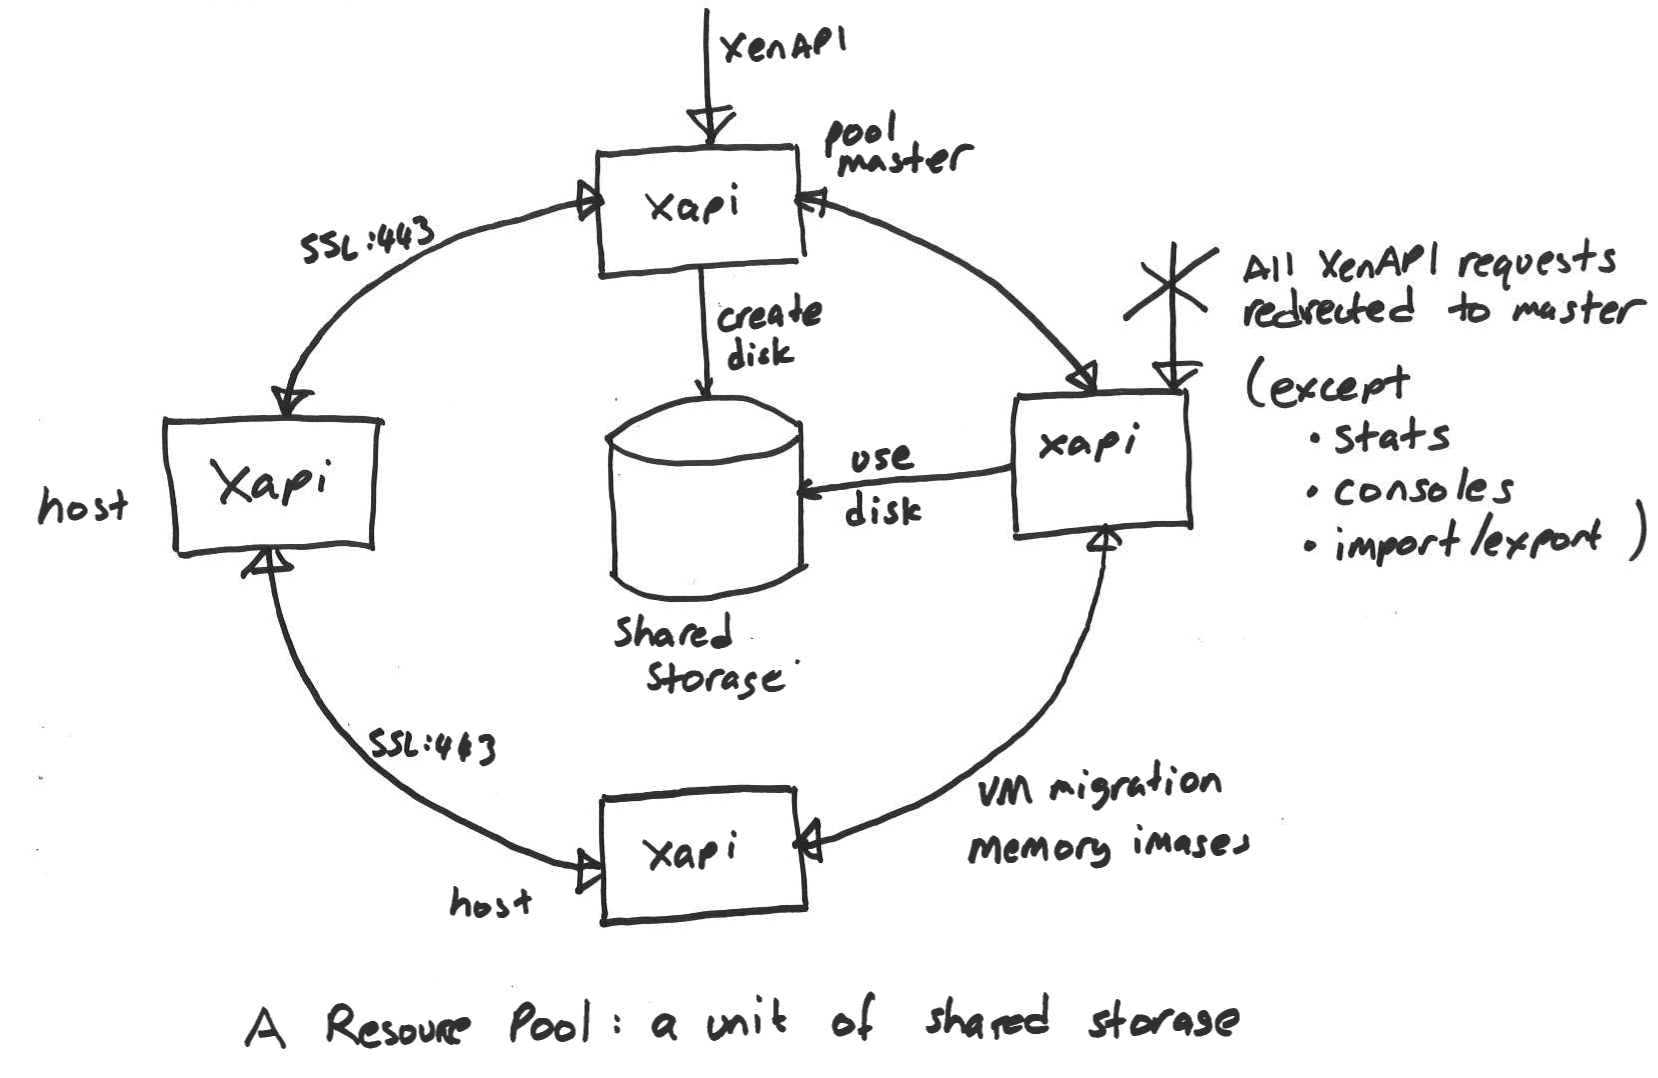 XenAPI
pool
master
xapi
SSL:443
create
disk
All XenAPI requests
redirected to master
(except
• stats
• consoles
• import/export)
host
xapi
xapi
use
disk
shared
storage
SSL:443
VM migration
memory images
xapi
host
A Resoure Pool: a unit of shared storage